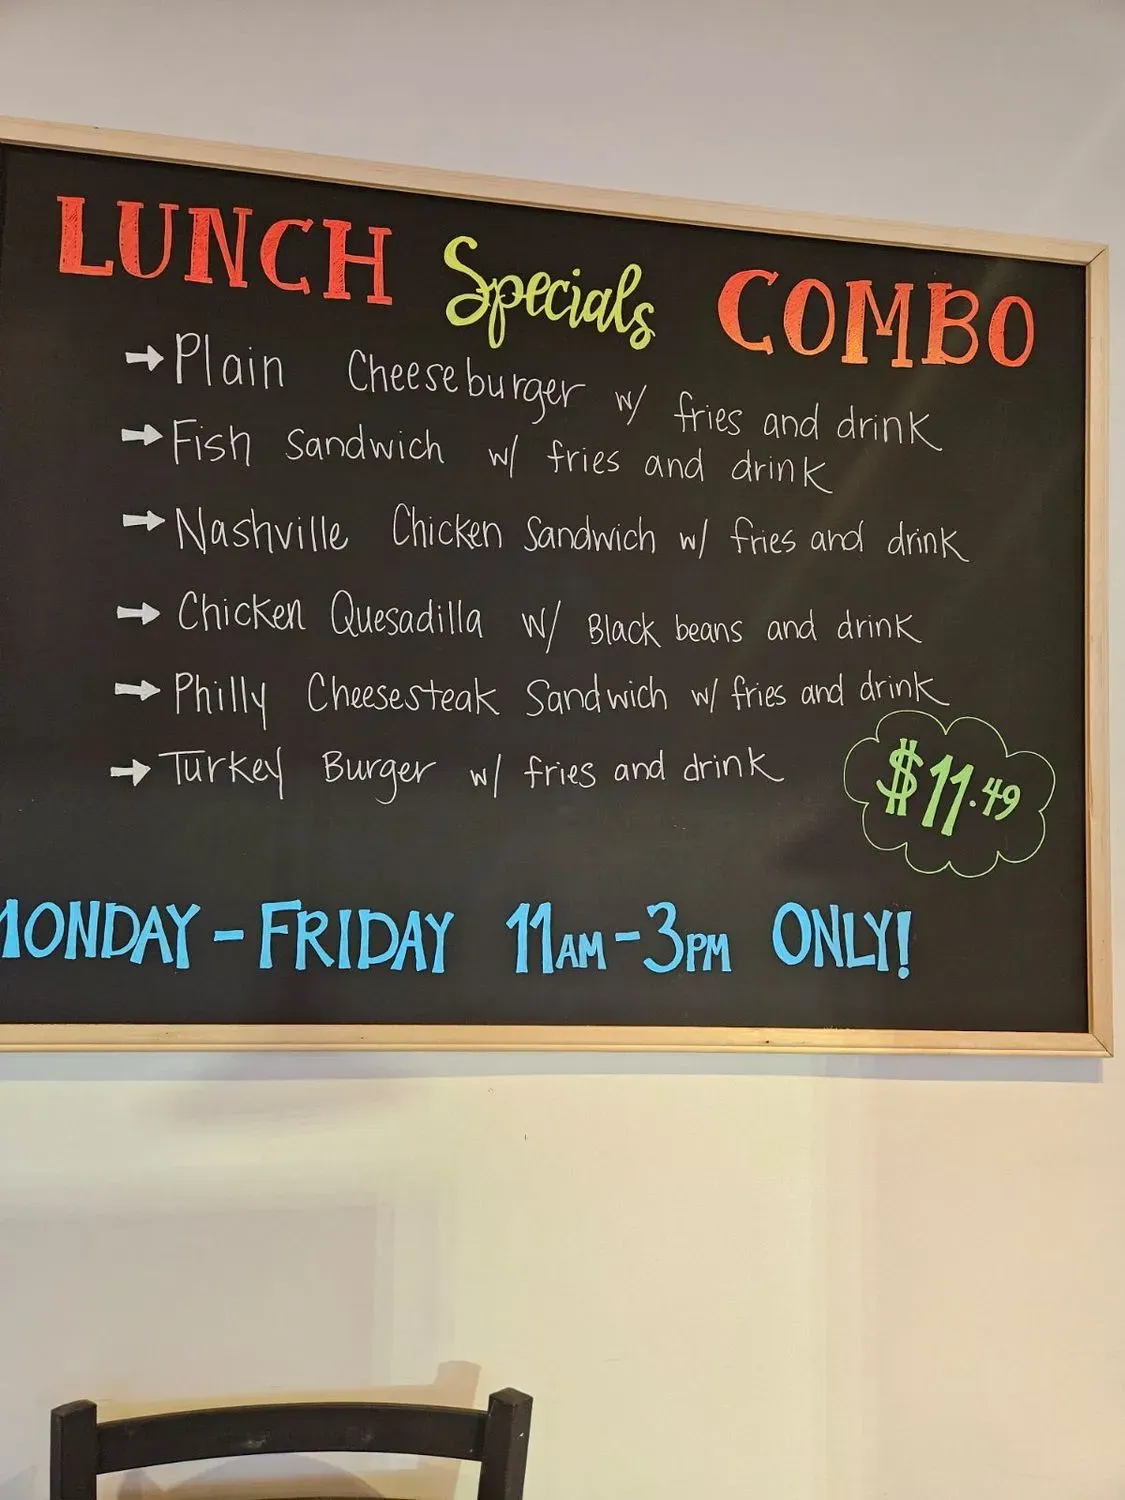 LUNCH Specials COMBO
→ Plain Cheeseburger w/ fries and drink
→ Fish Sandwich w/ fries and drink
→ Nashville Chicken Sandwich w/ fries and drink
→ Chicken Quesadilla w/ Black beans and drink
→ Philly Cheesesteak Sandwich w/ fries and drink
→ Turkey Burger w/ fries and drink
$11.49
MONDAY - FRIDAY 11AM - 3PM ONLY!